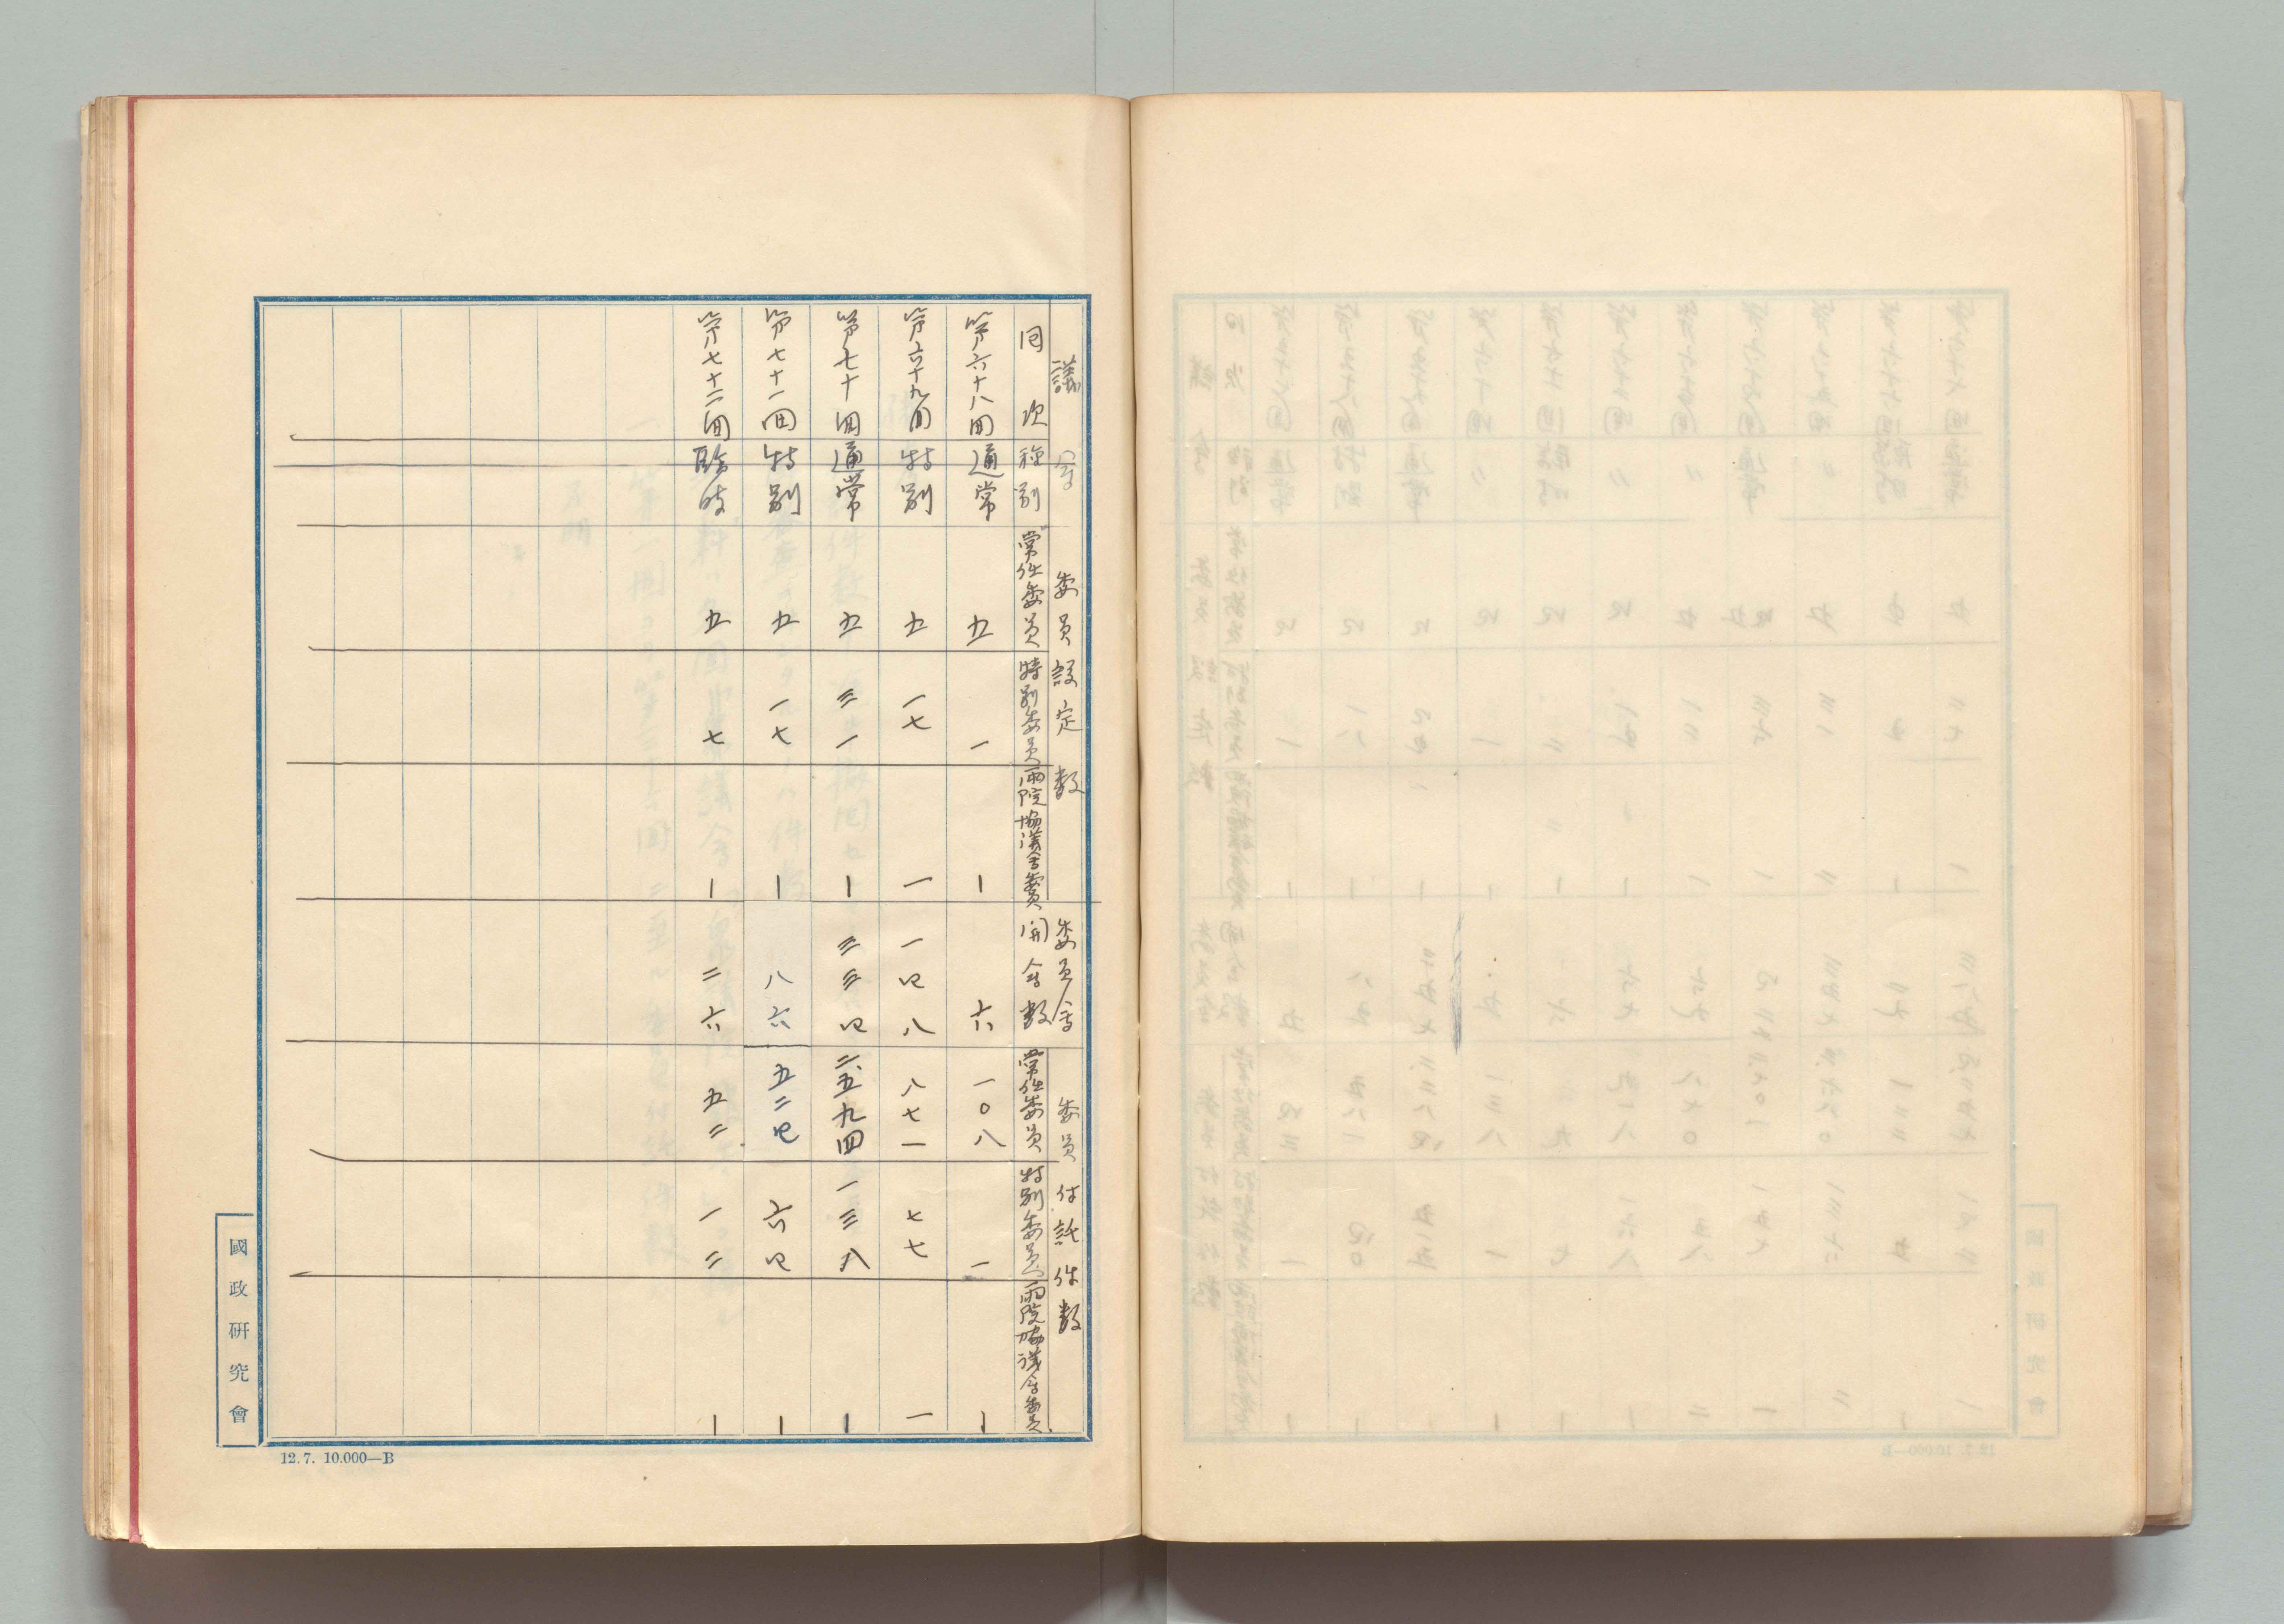 議会 委員設定数 委員会 委員付託件数
回次 種別 常任委員 特別委員 両院協議会委員 開会数 常任委員 特別委員 両院協議会委員
第六十八回 通常 五 一 ー 六 一〇八 一 ー
第六十九回 特別 五 一七 一 一四八 八七一 七七 一
第七十回 通常 五 三一 ー 三三四 二、五九四 一三八 ー
第七十一回 特別 五 一七 ー 八六 五二四 六四 ー
第七十二回 臨時 五 七 ー 二六 五二 一二 ー
國政研究會
12.7. 10.000—B